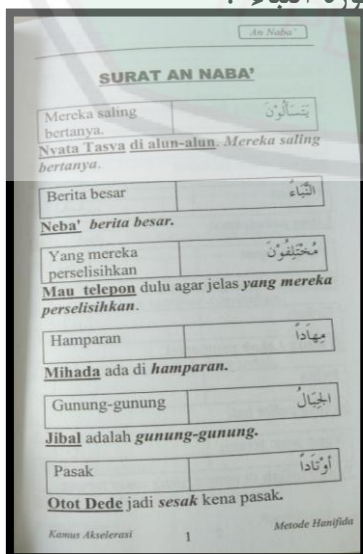 سورة النباء .
An Naba'
SURAT AN NABA'
Mereka saling bertanya. يَتَسَائَلُوْنَ
Nyata Tasya di alun-alun. Mereka saling
bertanya.
Berita besar النَّبَاءُ
Neba' berita besar.
Yang mereka perselisihkan مُخْتَلِفُوْنَ
Mau telepon dulu agar jelas yang mereka
perselisihkan.
Hamparan مِهَاداً
Mihada ada di hamparan.
Gunung-gunung الجِبَالُ
Jibal adalah gunung-gunung.
Pasak أَوْتَاداً
Otot Dede jadi sesak kena pasak.
Kamus Akselerasi 1 Metode Hanifida